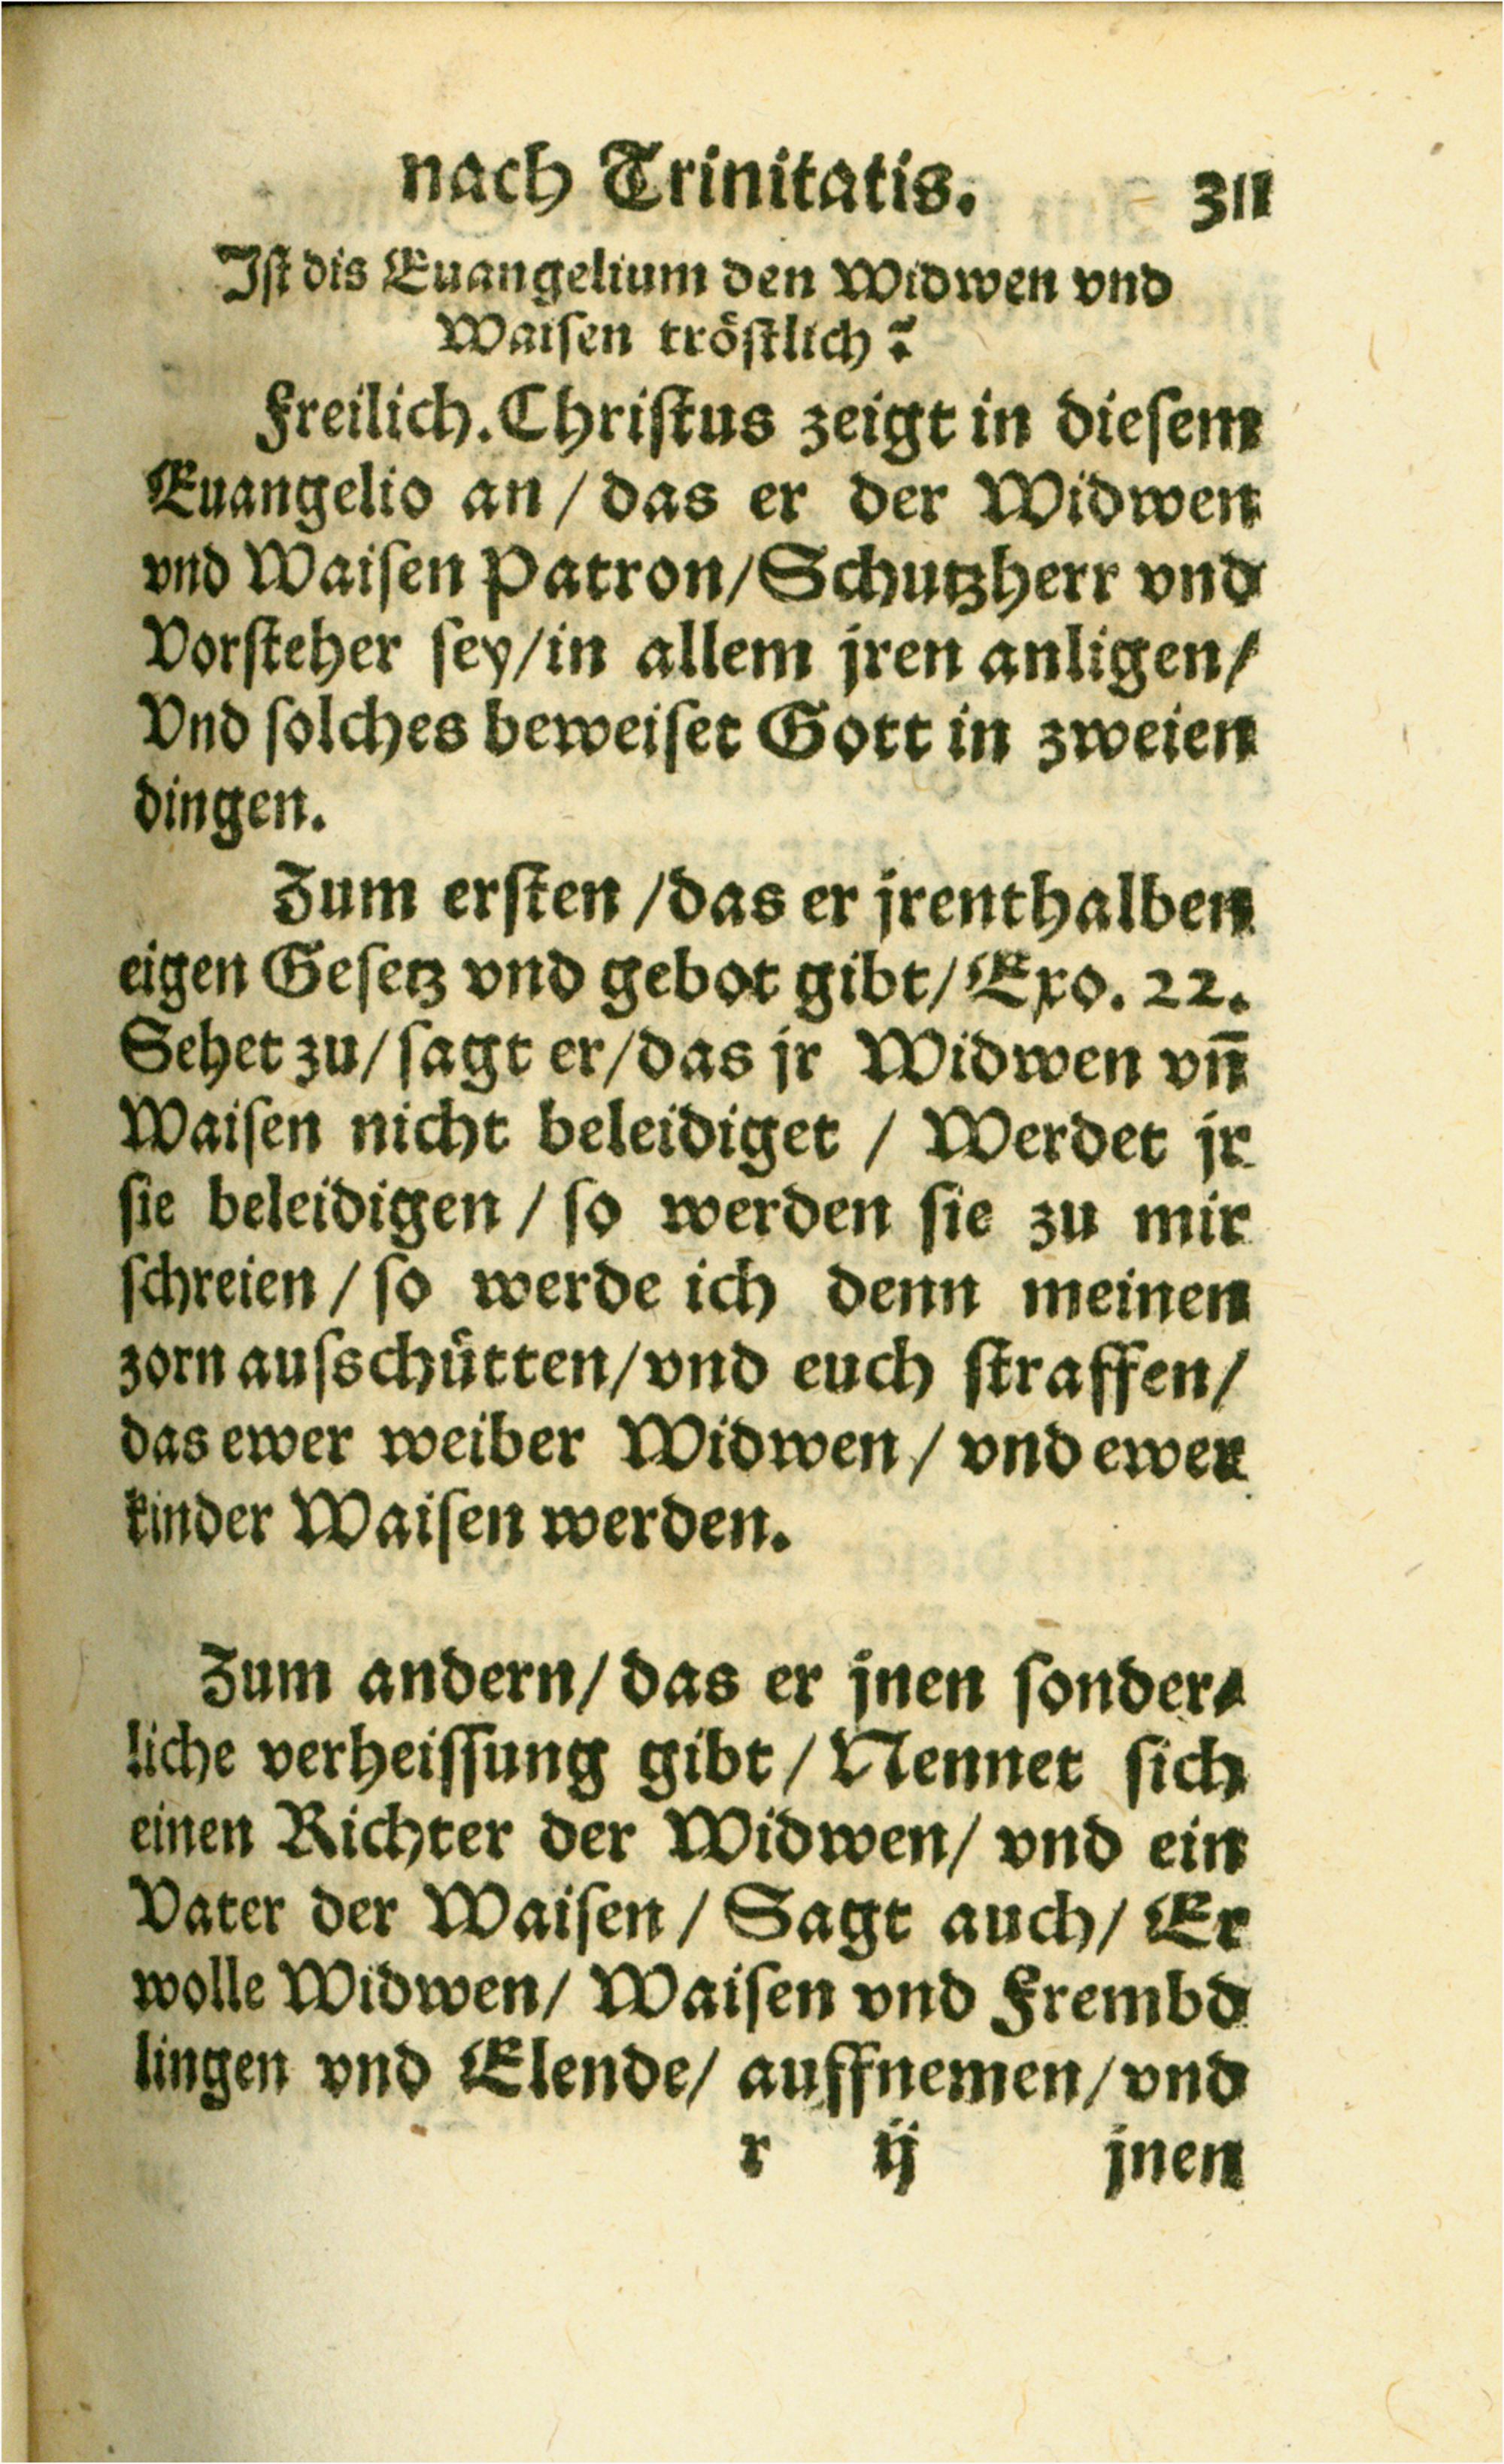 nach Trinitatis. 311
Iſt dis Euangelium den Widwen vnd
Waiſen tröſtlich?
Freilich. Chriſtus zeigt in dieſem
Euangelio an / das er der Widwen
vnd Waiſen Patron/Schutzherr vnd
Vorſteher ſey/in allem jren anligen/
Vnd ſolches beweiſet Gott in zweien
dingen.
Zum erſten /das er jrenthalben
eigen Geſetz vnd gebot gibt/ Exo. 22.
Sehet zu/ ſagt er/das jr Widwen vn̄
Waiſen nicht beleidiget / Werdet jr
ſie beleidigen / ſo werden ſie zu mir
ſchreien / ſo werde ich denn meinen
zorn auſsſchütten/vnd euch ſtraffen/
das ewer weiber Widwen / vnd ewer
kinder Waiſen werden.
Zum andern/ das er jnen ſonder⸗
liche verheiſſung gibt / Nennet ſich
einen Richter der Widwen/ vnd ein
Vater der Waiſen / Sagt auch/ Er
wolle Widwen/ Waiſen vnd Frembd
lingen vnd Elende/ auffnemen/vnd
r ij jnen